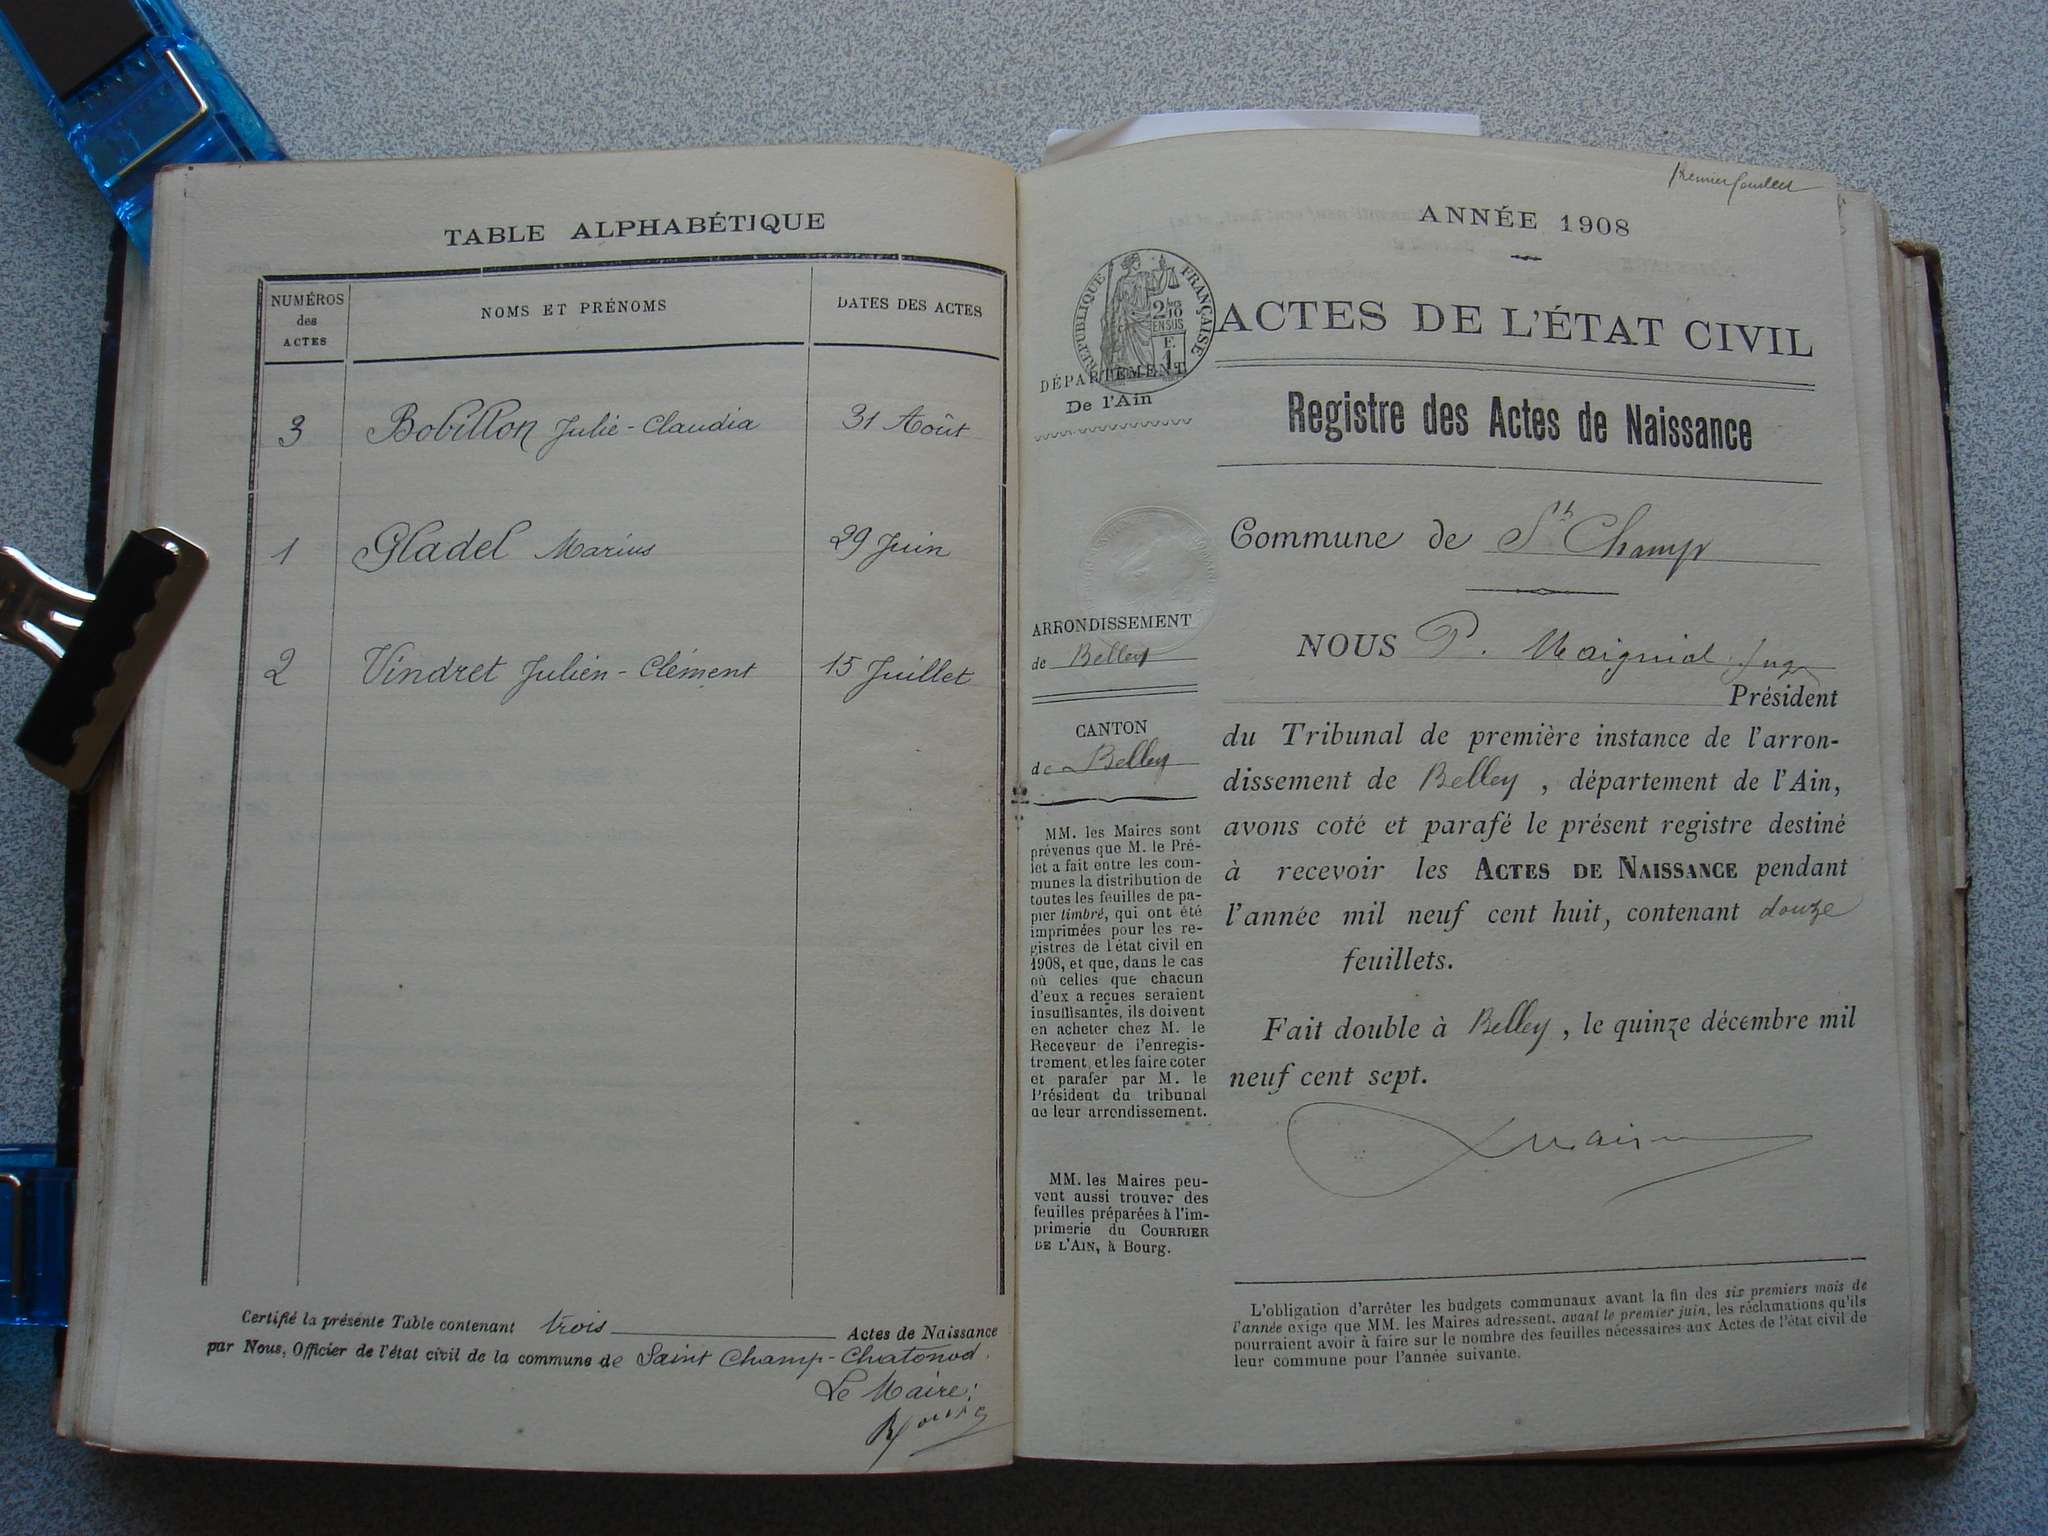 TABLE ALPHABÉTIQUE
NUMÉROS
des
ACTES
NOMS ET PRÉNOMS
DATES DES ACTES
3 Bobillon Julie-Claudia 31 Août
1 Gladel Marius 29 Juin
2 Vindret Julien-Clément 15 Juillet
Certifié la présente Table contenant trois Actes de Naissance
par Nous, Officier de l'état civil de la commune de Saint Champ-Chatonod.
Le Maire:
Premier feuillet
ANNÉE 1908
RÉPUBLIQUE FRANÇAISE
ACTES DE L'ÉTAT CIVIL
DÉPARTEMENT
De l'Ain
Registre des Actes de Naissance
Commune de St Champ
ARRONDISSEMENT
de Belley
CANTON
de Belley
MM. les Maires sont
prévenus que M. le Pré-
fet a fait entre les com-
munes la distribution de
toutes les feuilles de pa-
pier timbré, qui ont été
imprimées pour les re-
gistres de l'état civil en
1908, et que, dans le cas
où celles que chacun
d'eux a reçues seraient
insuffisantes, ils doivent
en acheter chez M. le
Receveur de l'enregis-
trement, et les faire coter
et parafer par M. le
Président du tribunal
de leur arrondissement.
MM. les Maires peu-
vent aussi trouver des
feuilles préparées à l'im-
primerie du COURRIER
DE L'AIN, à Bourg.
NOUS P. Maignial Juge
Président
du Tribunal de première instance de l'arron-
dissement de Belley, département de l'Ain,
avons coté et parafé le présent registre destiné
à recevoir les ACTES DE NAISSANCE pendant
l'année mil neuf cent huit, contenant douze
feuillets.
Fait double à Belley, le quinze décembre mil
neuf cent sept.
L'obligation d'arrêter les budgets communaux avant la fin des six premiers mois de
l'année exige que MM. les Maires adressent, avant le premier juin, les réclamations qu'ils
pourraient avoir à faire sur le nombre des feuilles nécessaires aux Actes de l'état civil de
leur commune pour l'année suivante.